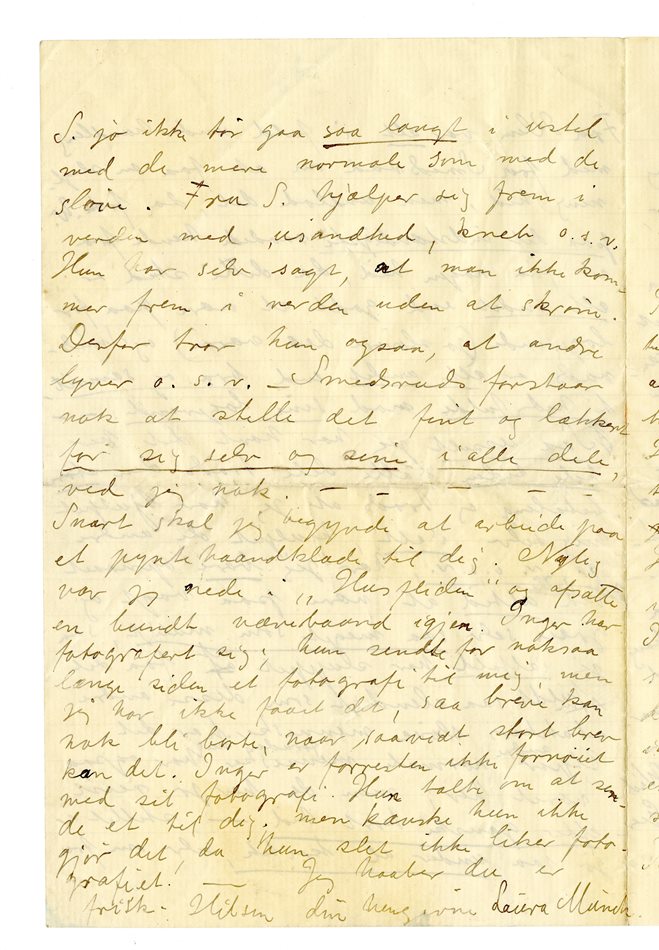 S. jo ikke tør gaa saa langt i ustel
med de mere normale som med de
sløve. Fru S. hjælper sig frem i
verden med usandhed, kneb o.s.v.
Hun har selv sagt, at man ikke kom-
mer frem i verden uden at skrøne.
Derfor tror hun ogsaa, at andre
lyver o. s. v. – Smedsruds forstaar
nok at stelle det fint og lækkert
for sig selv og sine i alle dele,
ved jeg nok. – – – – –
Snart skal jeg begynde at arbeide paa
et pyntehaandklæde til dig. Nylig
var jeg nede i „Husfliden" og afsatte
en bundt vævebaand igjen. Inger har
fotografert sig; hun sendte for noksaa
længe siden et fotografi til mig, men
jeg har ikke faait det, saa breve kan
nok bli borte, naar saavidt stort brev
kan det. Inger er forresten ikke fornøiet
med sit fotografi. Hun talte om at sen-
de et til dig, men kanske hun ikke
gjør det, da hun slet ikke liker foto-
grafiet. — Jeg haaber du er
frisk. Hilsen din hengivne Laura Munch.